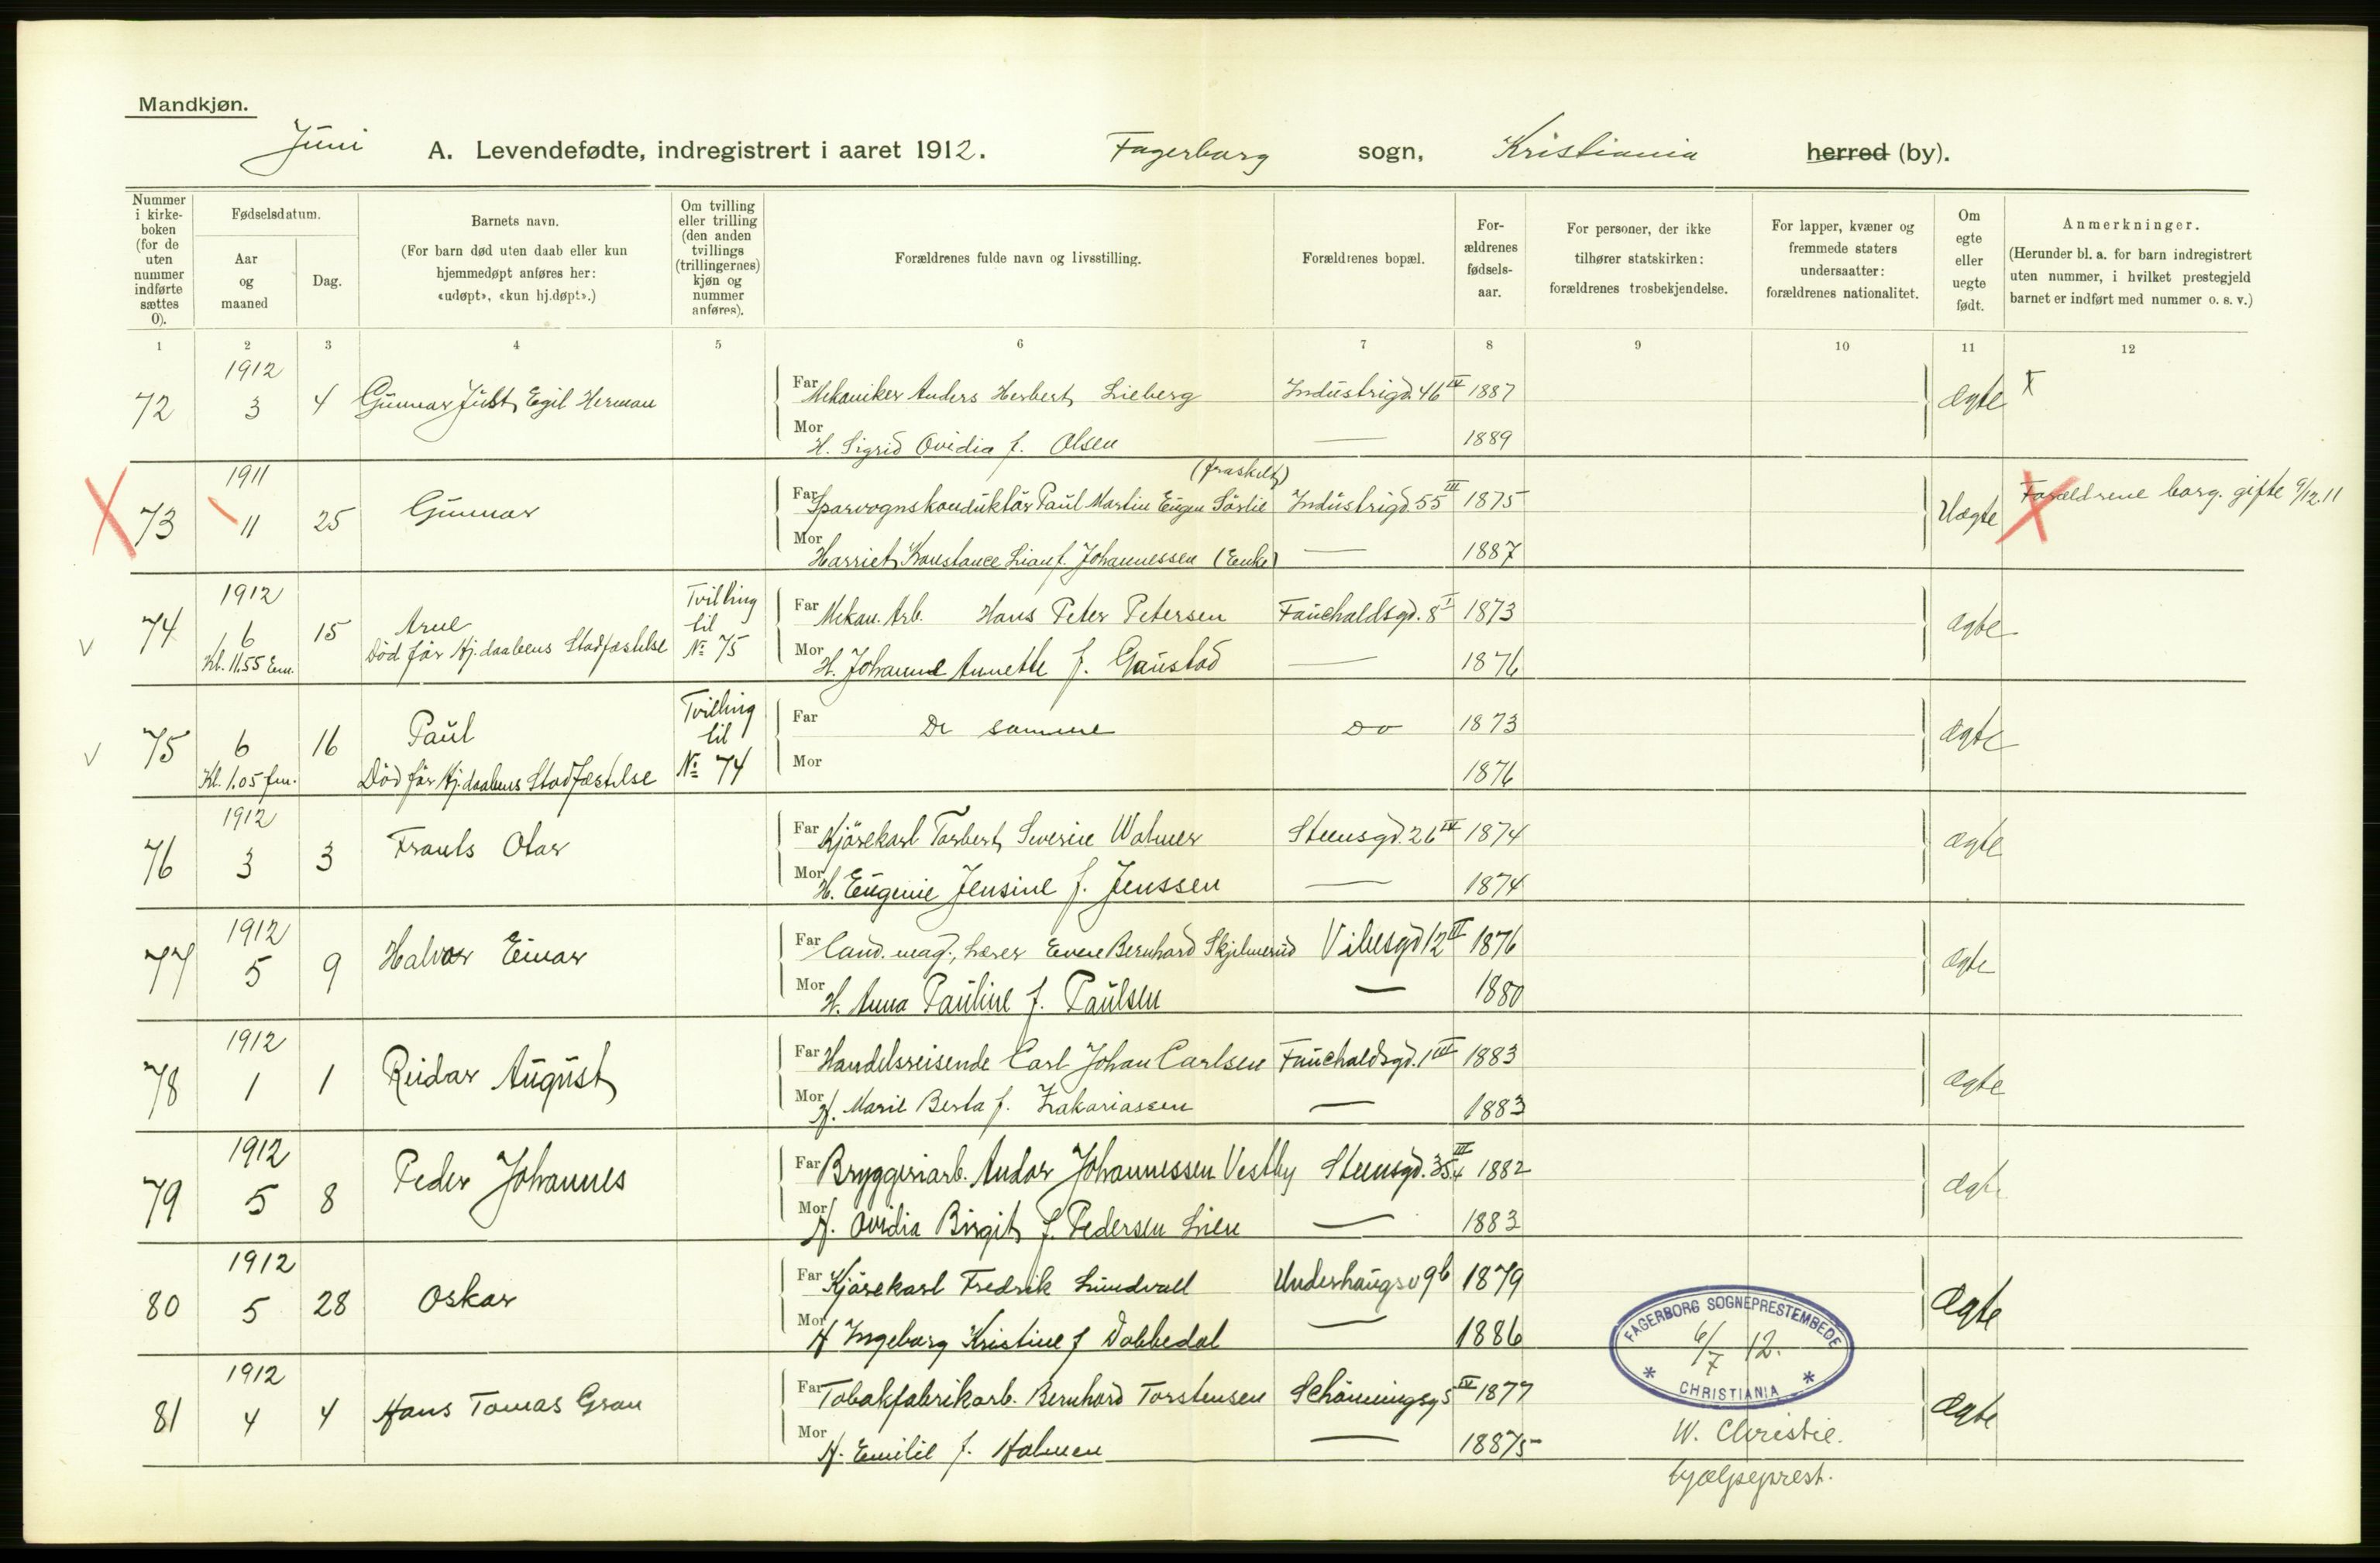 Mandkjøn.
Juni A. Levendefødte, indregistrert i aaret 1912. Fagerborg sogn, Kristiania herred (by).
Nummer i kirke-boken (for de uten nummer indførte sættes 0).
Fødselsdatum.
Aar og maaned
Dag.
Barnets navn.
(For barn død uten daab eller kun hjemmedøpt anføres her: «udøpt», «kun hj.døpt».)
Om tvilling eller trilling (den anden tvillings (trillingernes) kjøn og nummer anføres).
Forældrenes fulde navn og livsstilling.
Forældrenes bopæl.
For-ældrenes fødsels-aar.
For personer, der ikke tilhører statskirken: forældrenes trosbekjendelse.
For lapper, kvæner og fremmede staters undersaatter: forældrenes nationalitet.
Om egte eller uegte født.
Anmerkninger.
(Herunder bl. a. for barn indregistrert uten nummer, i hvilket prestegjeld barnet er indført med nummer o. s. v.)
1 2 3 4 5 6 7 8 9 10 11 12
1912
72 3 4 Gunnar Just Egil Herman Far Mekaniker Anders Herbert Lieberg Industrigd. 46 IV 1887 Ægte X
Mor H. Sigrid Ovidia f. Olsen — 1889
1911 (fraskilt)
X 73 11 25 Gunnar Far Sporvognskonduktør Paul Martin Eugen Sørlie Industrigd. 55 III 1875 Uægte X Forældrene borg. gifte 9/12.11
Mor Harriet Konstance Lian f. Johannessen (Enke) — 1887
1912 Tvilling
v 74 6 15 Arne til Far Mekan. Arb. Hans Peter Petersen Fauchaldsgd. 8 I 1873 Ægte
Kl. 11.55 Em. Dödför Hj.daabens Stadfæstelse No 75 Mor H. Johanne Annette f. Gaustad — 1876
Tvilling
v 75 6 16 Paul til Far De samme Do 1873 Ægte
Kl. 1.05 fm. Död för Hj.daabens Stadfæstelse No 74 Mor 1876
1912
76 3 3 Frants Otar Far Kjörekarl Torbert Severin Wolmer Steensgd. 26 IV 1874 Ægte
Mor H. Eugenie Jensine f. Jenssen — 1874
1912
77 5 9 Halvor Einar Far Cand. mag., Lærer Even Bernhard Skjelmerud Vibesgd 12 II 1876 Ægte
Mor H. Anna Pauline f. Paulsen — 1880
1912
78 1 1 Reidar August Far Handelsreisende Carl Johan Carlsen Fauchaldsgd. 1 III 1883 Ægte
Mor H. Marie Berta f. Zakariassen — 1883
1912
79 5 8 Peder Johannes Far Bryggeriarb. Andor Johannessen Vestby Steensgd. 35 III 1882 Ægte
Mor H. Ovidia Birgit f. Pedersen Lien — 1883
1912
80 5 28 Oskar Far Kjörekarl Fredrik Lundvall Underhaugsv 9b 1879 Ægte
Mor H Ingeborg Kristine f Dobbedal — 1886
1912
81 4 4 Hans Tomas Gran Far Tobakfabrikarb. Bernhard Torstensen Schöningsg 5 IV 1877 Ægte
Mor H. Emilie f. Holmen — 1875
FAGERBORG SOGNEPRESTEMBEDE
6/7 12.
* CHRISTIANIA *
W. Christie.
hjælpeprest.